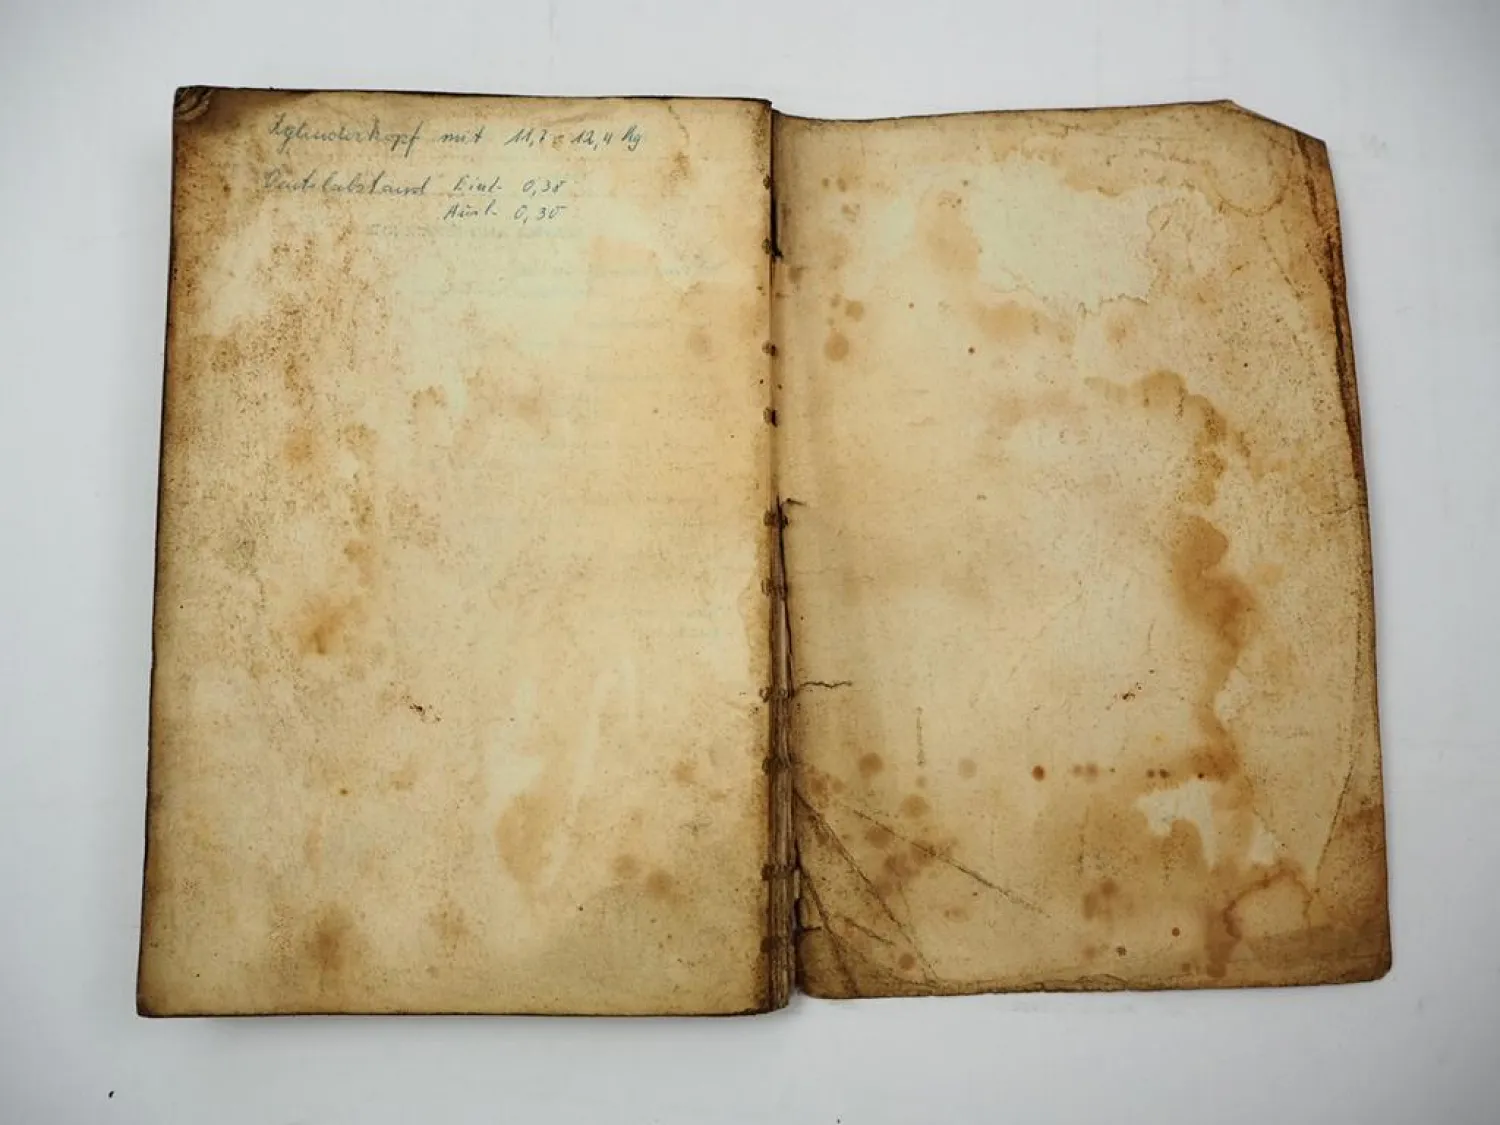 Zylinderkopf mit 11,7 - 12,4 Kg
Ventilabstand Einl. 0,38
Ausl. 0,30